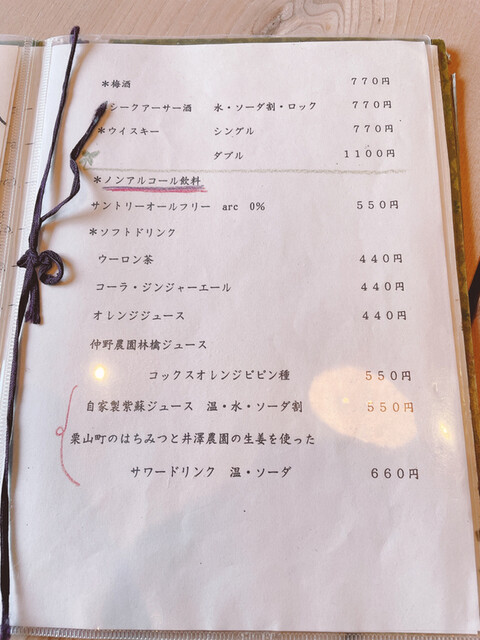 *梅酒 770円
シークアーサー酒 水・ソーダ割・ロック 770円
*ウイスキー シングル 770円
ダブル 1100円
*ノンアルコール飲料
サントリーオールフリー arc 0% 550円
*ソフトドリンク
ウーロン茶 440円
コーラ・ジンジャーエール 440円
オレンジジュース 440円
仲野農園林檎ジュース
コックスオレンジピピン種 550円
自家製紫蘇ジュース 温・水・ソーダ割 550円
栗山町のはちみつと井澤農園の生姜を使った
サワードリンク 温・ソーダ 660円